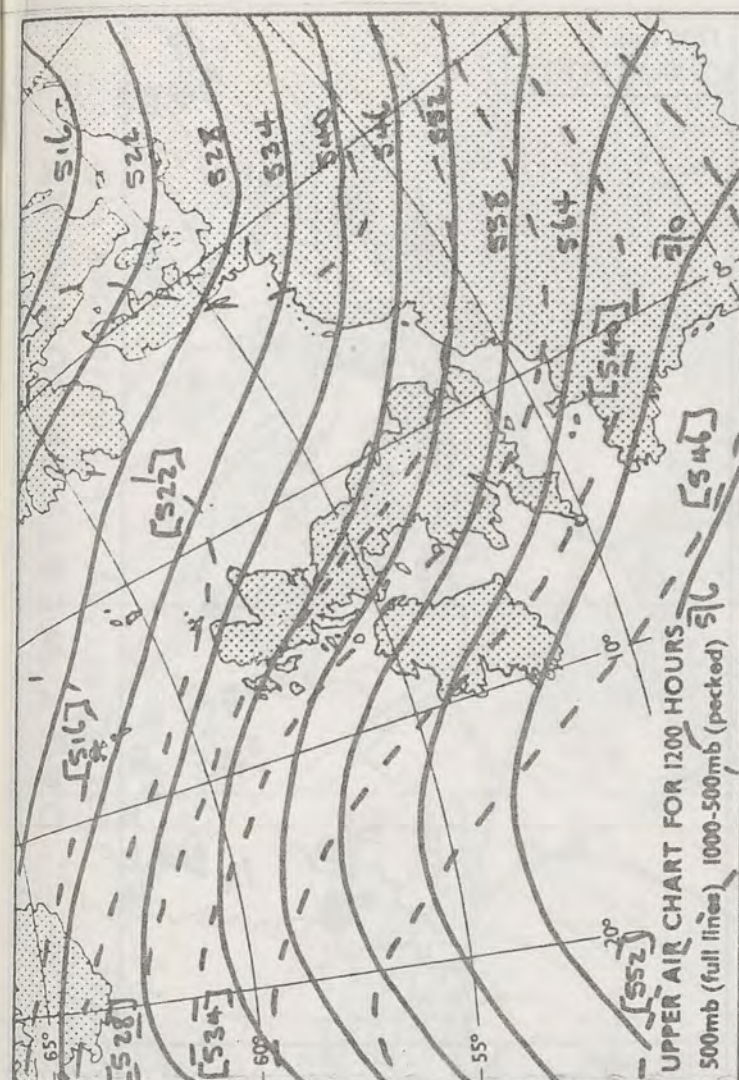 516
522
528
534
540
546
552
558
564
570
576
[516]
[522]
[528]
[534]
[540]
[546]
[552]
65°
60°
55°
20°
10°
0°
UPPER AIR CHART FOR 1200 HOURS
500mb (full lines) 1000-500mb (pecked)